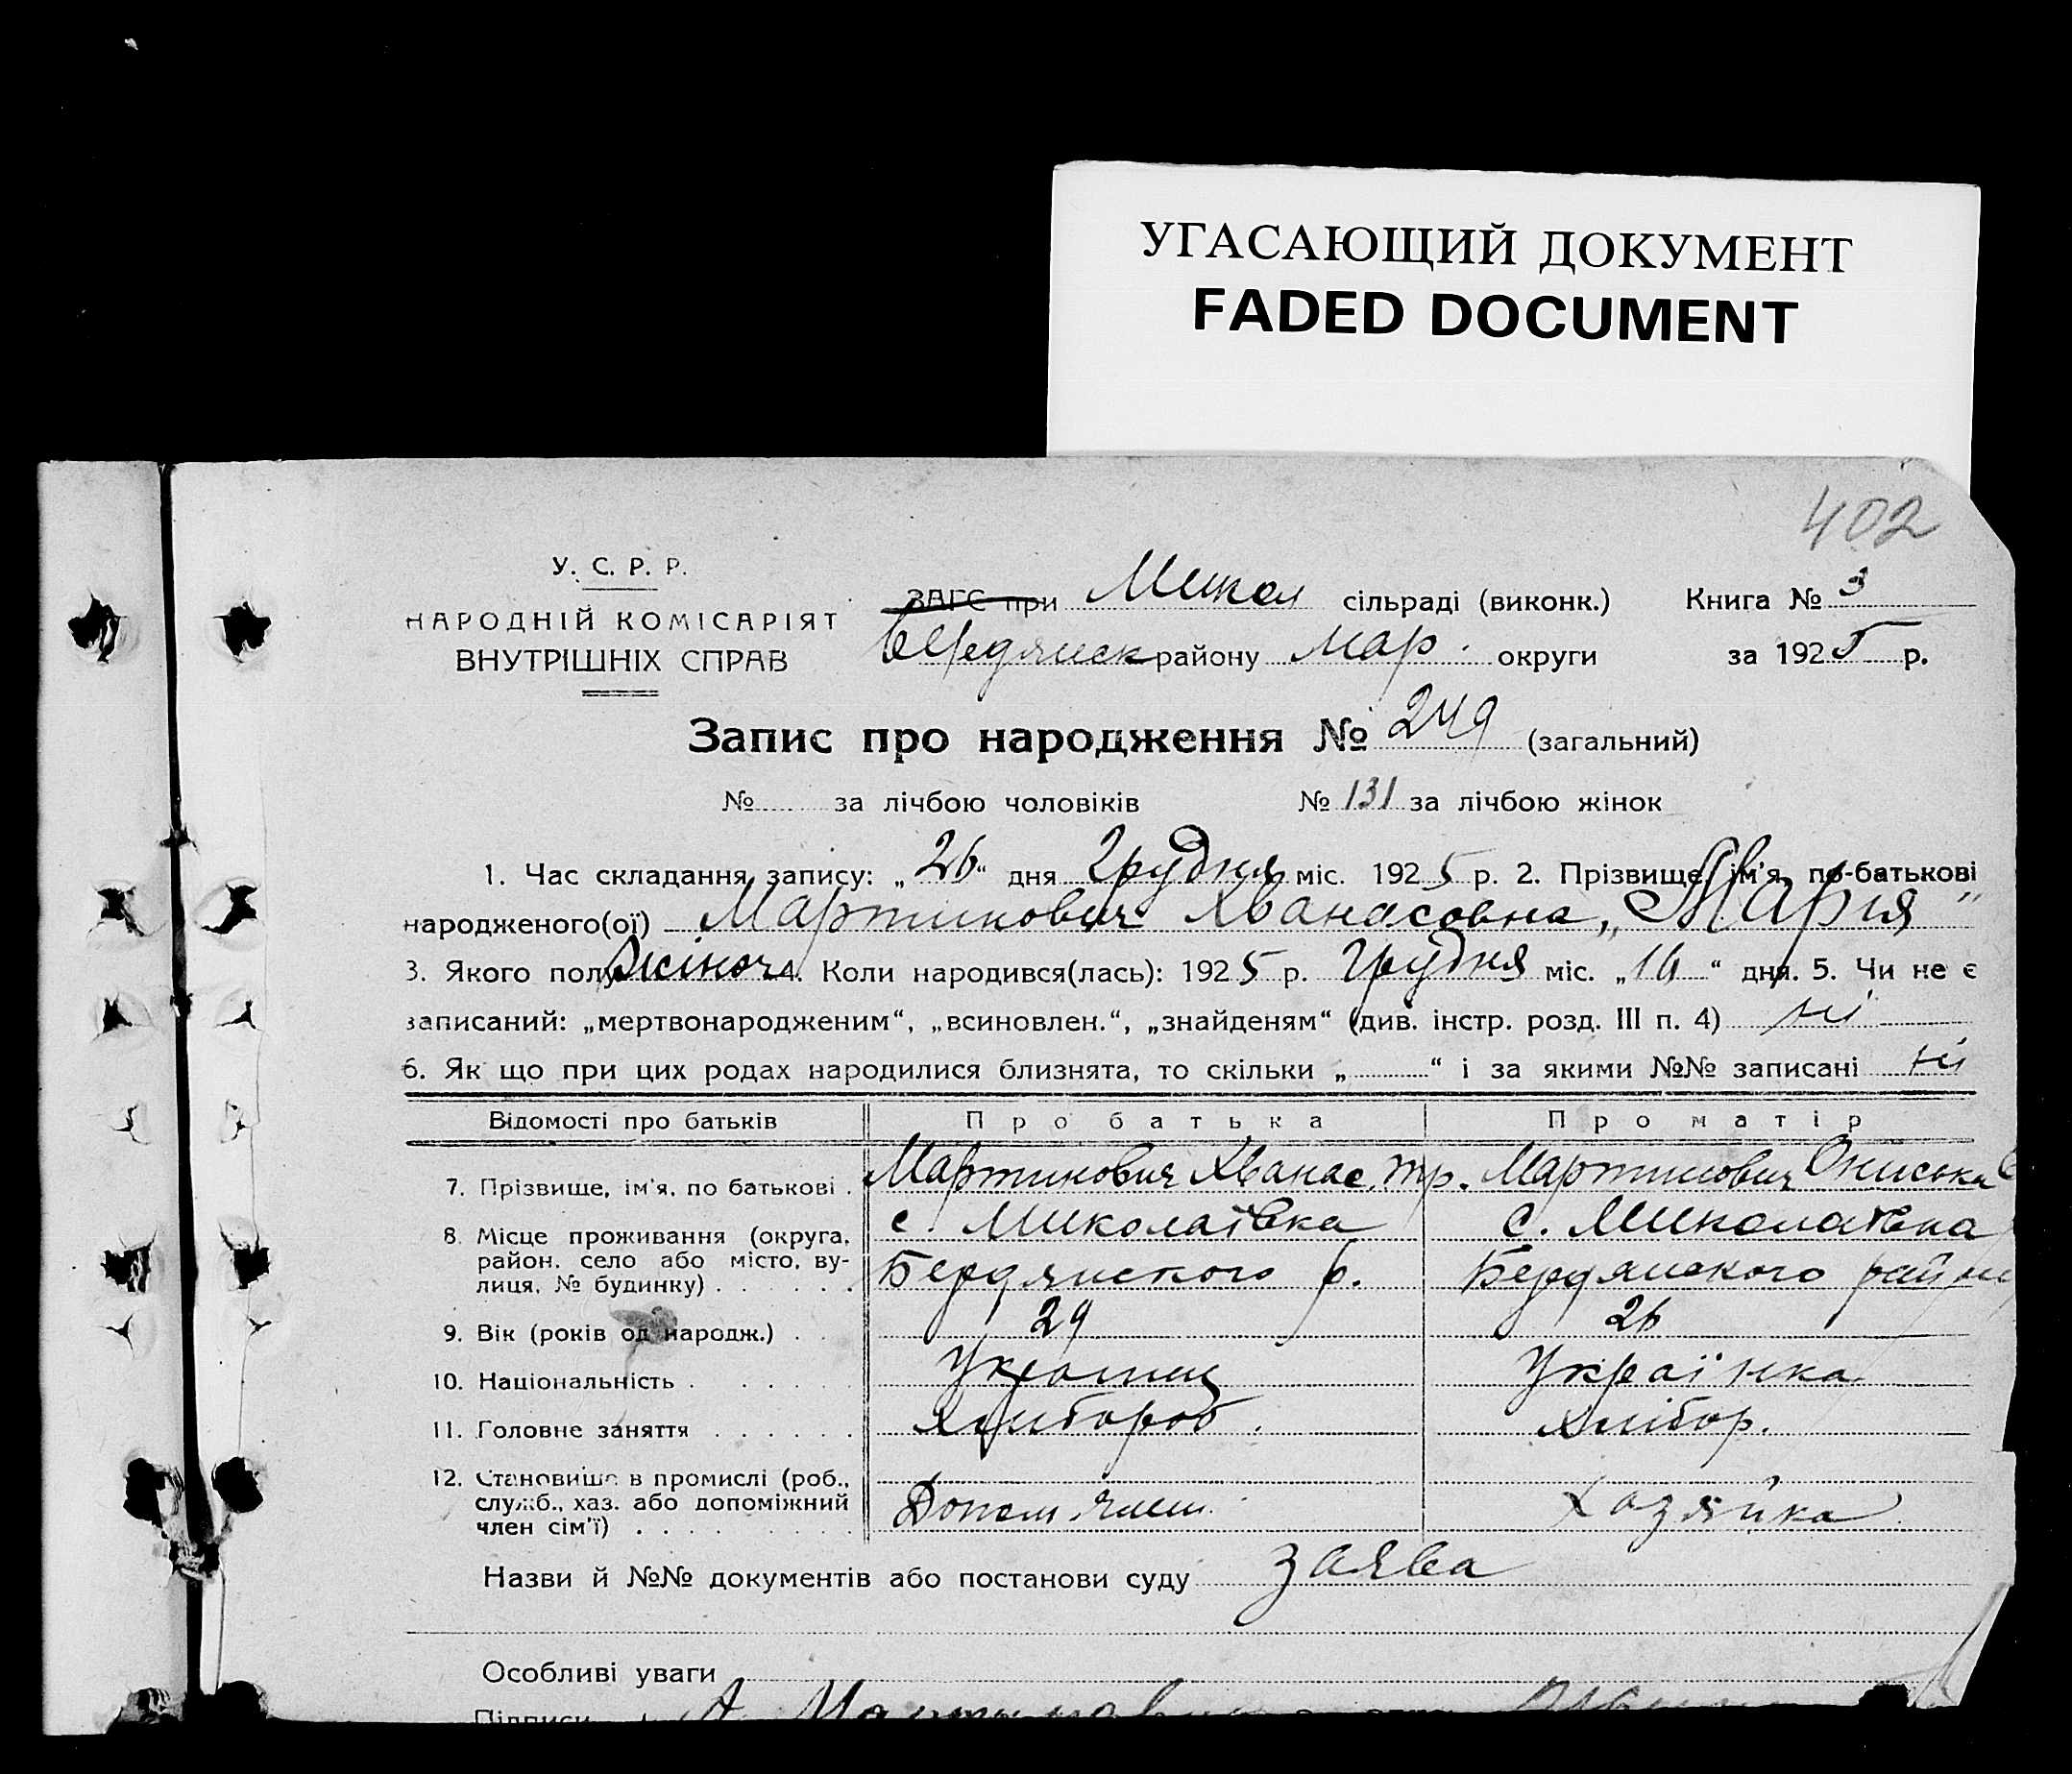 УГАСАЮЩИЙ ДОКУМЕНТ
FADED DOCUMENT
402
У. С. Р. Р.
НАРОДНІЙ КОМІСАРІЯТ
ВНУТРІШНІХ СПРАВ
ЗАГС при Микол сільраді (виконк.) Книга № 3
Бердянск району Мар. округи за 1925 р.
Запис про народження № 249 (загальний)
№ за лічбою чоловіків № 131 за лічбою жінок
1. Час складання запису: „26“ дня Грудня міс. 1925 р. 2. Прізвище, ім'я, по-батькові
народженого(ої) Мартинович Хванасовна „Марія"
3. Якого полу жіноч 4. Коли народився(лась): 1925 р. Грудня міс. „16“ дня. 5. Чи не є
записаний: „мертвонародженим“, „всиновлен.“, „знайденям“ (див. інстр. розд. III п. 4) ні
6. Як що при цих родах народилися близнята, то скільки „ “ і за якими №№ записані ні
Відомості про батьків Про батька Про матір
7. Прізвище, ім'я, по батькові . Мартинович Хванас. Тр. Мартинович Ониська
8. Місце проживання (округа, с. Миколаївка с. Миколаївка
район, село або місто, ву-
лиця, № будинку) . . . . . . Бердянского р. Бердянского району
9. Вік (років од народж.) . . 29 26
10. Національність . . . . . . Українец Українка
11. Головне заняття . . . . . . Хлібороб. Хлібор.
12. Становище в промислі (роб.,
служб., хаз. або допоміжний Допом. член. Хазяйка
член сім'ї) . . . . . . . . .
Назви й №№ документів або постанови суду заява
Особливі уваги
Підписи А Мартинович